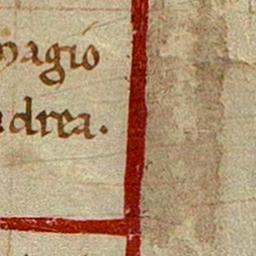 magio
adrea.